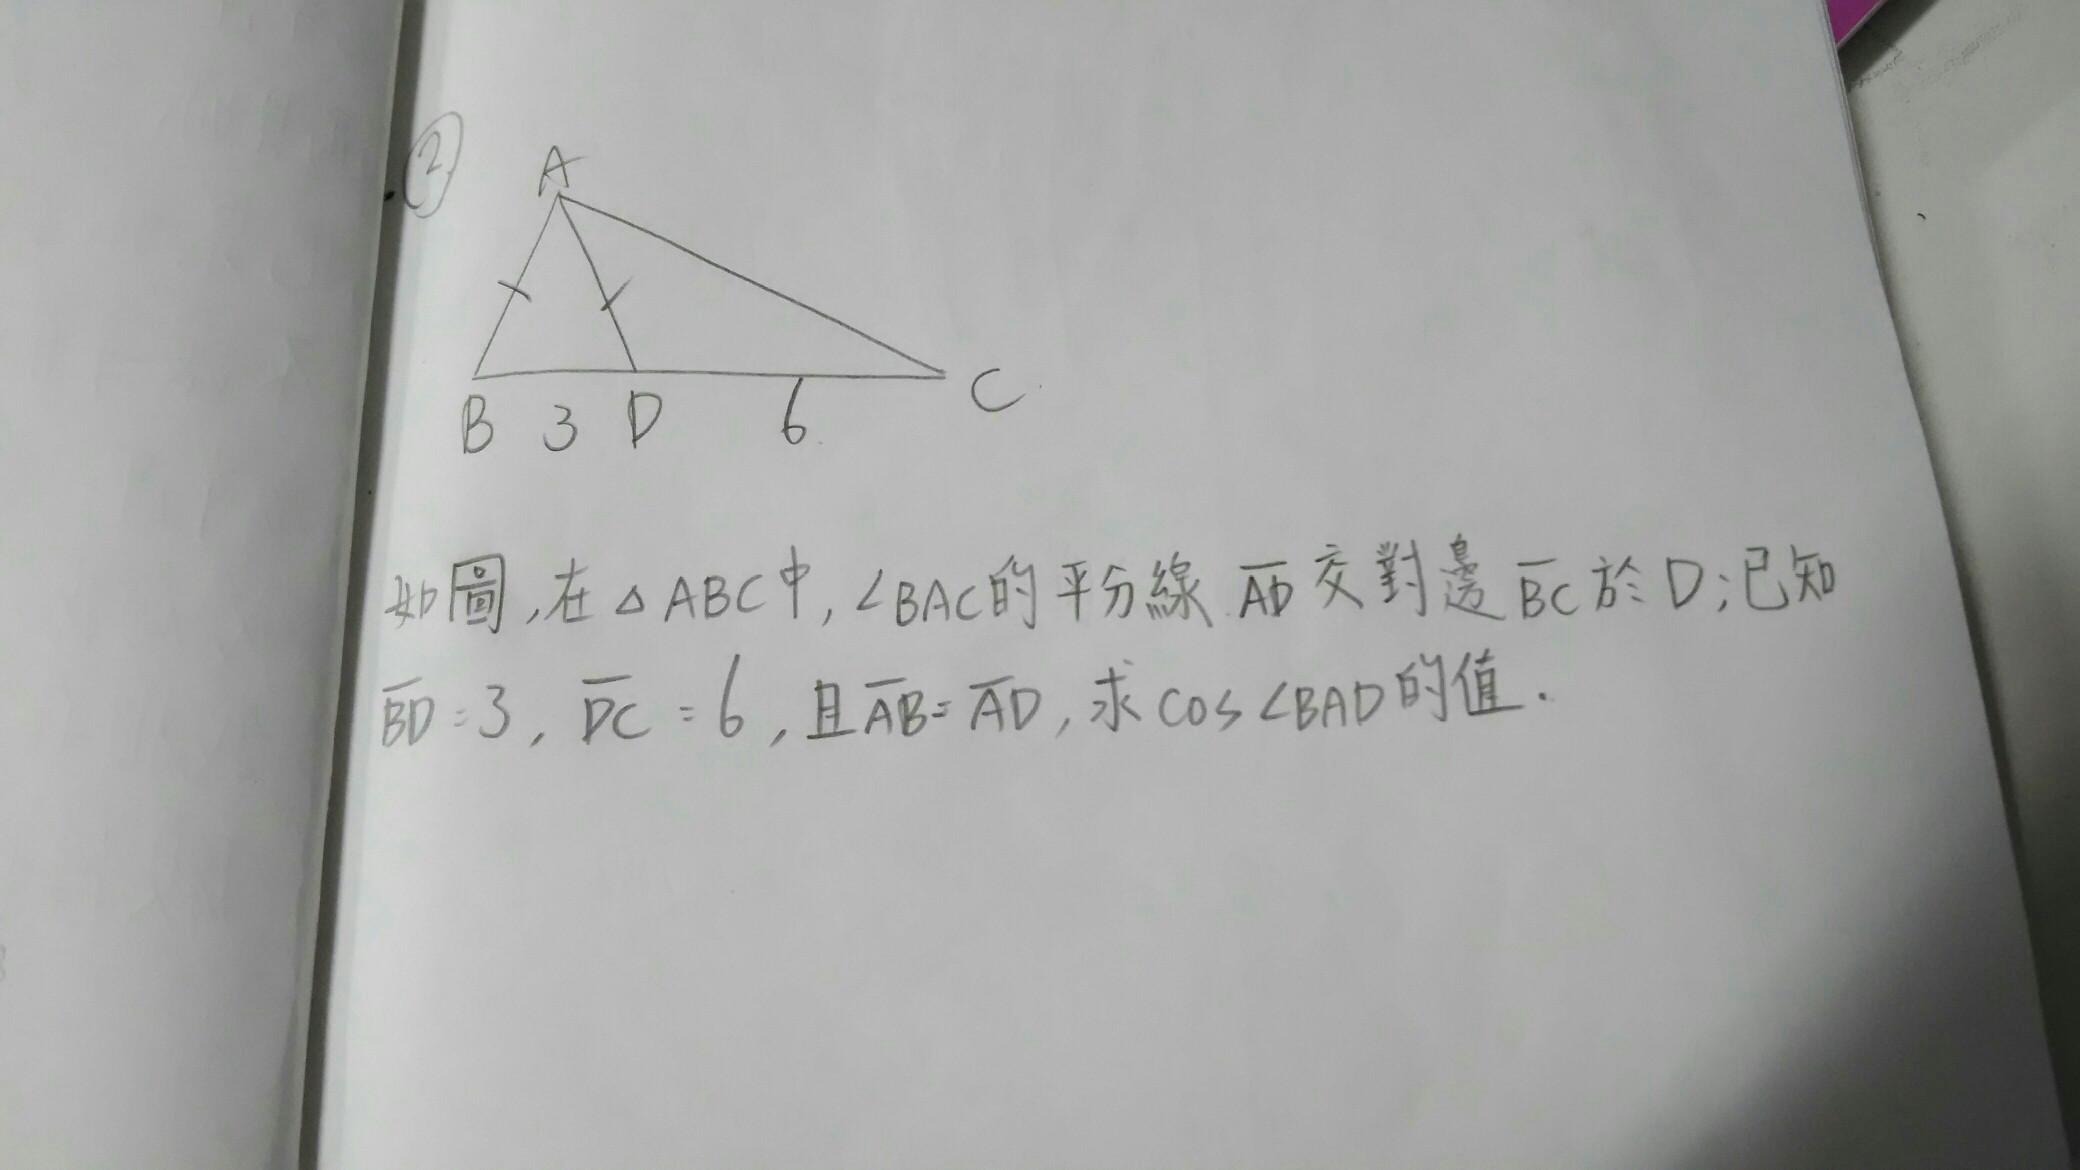 ②
A
B 3 D 6 C
如圖,在△ABC中,∠BAC的平分線 A̅D̅ 交對邊 B̅C̅ 於D;已知
B̅D̅=3, D̅C̅=6,且A̅B̅=A̅D̅,求cos∠BAD的值.